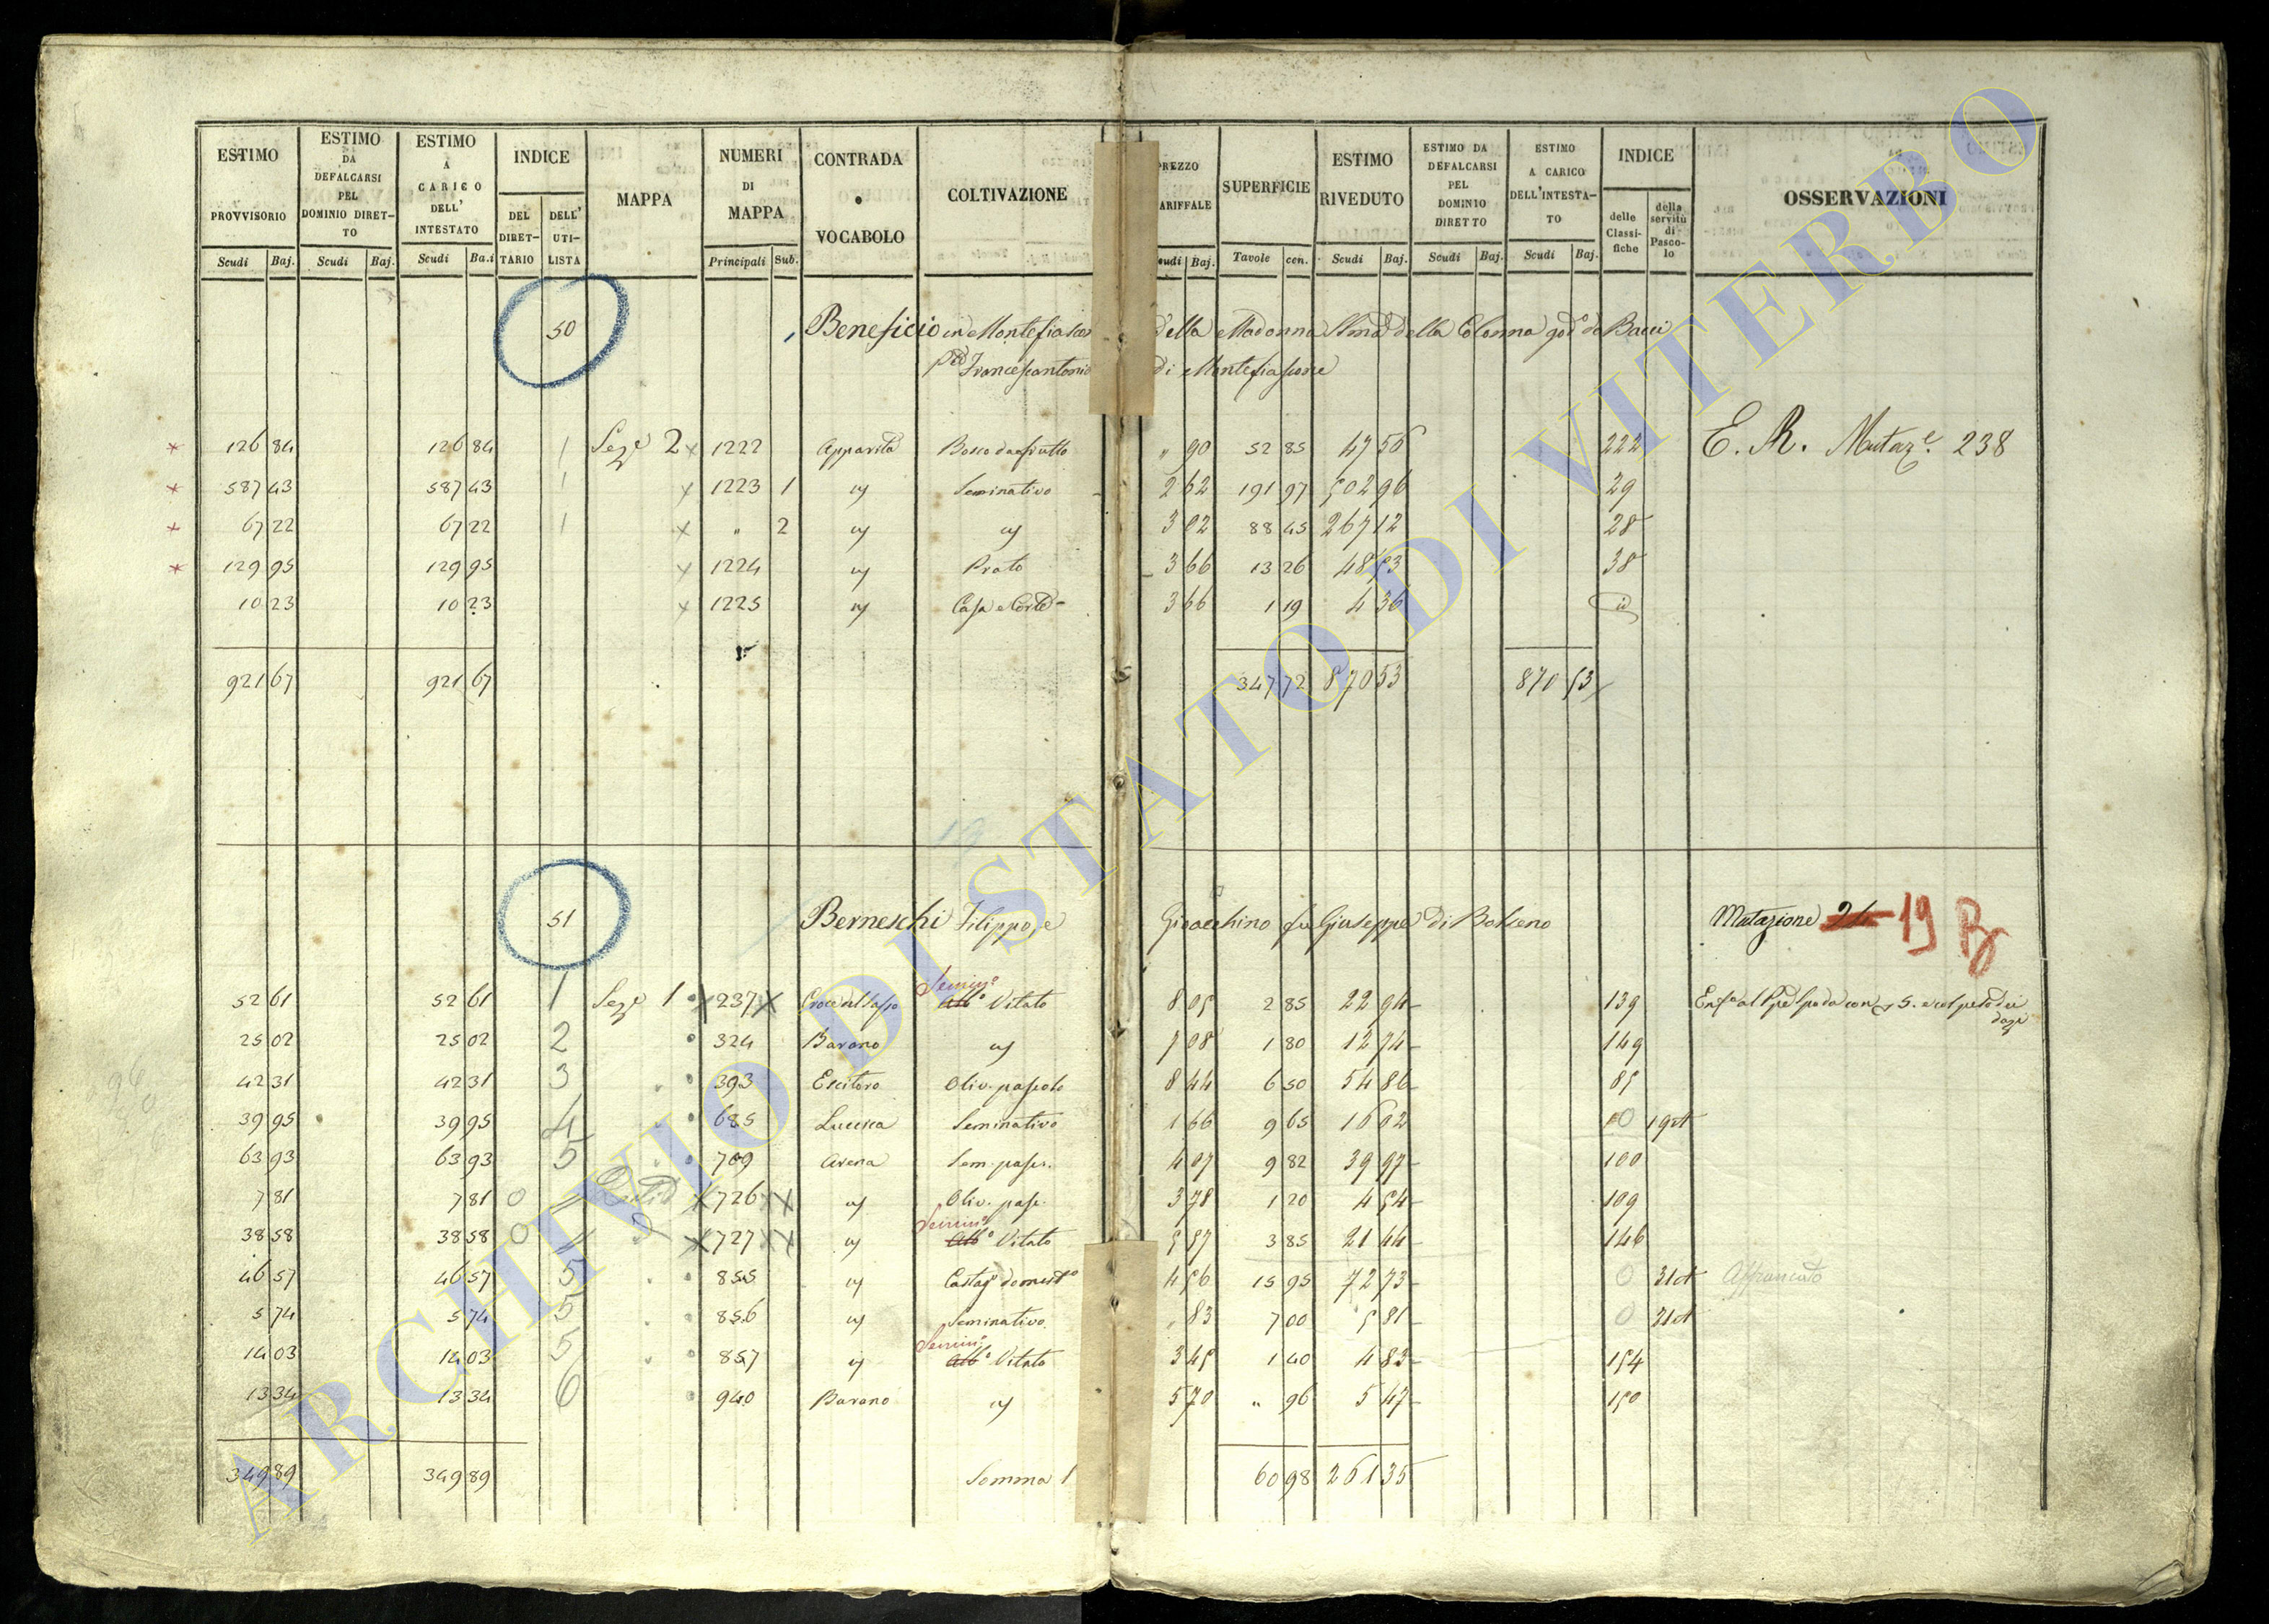 ESTIMO PROVVISORIO ESTIMO DA DEFALCARSI PEL DOMINIO DIRETTO ESTIMO A CARICO DELL' INTESTATO INDICE DEL DIRETTARIO DELL' UTILISTA MAPPA NUMERI DI MAPPA CONTRADA o VOCABOLO COLTIVAZIONE PREZZO TARIFFALE SUPERFICIE ESTIMO RIVEDUTO ESTIMO DA DEFALCARSI PEL DOMINIO DIRETTO ESTIMO A CARICO DELL'INTESTATO INDICE delle Classifiche della servitù di Pascolo OSSERVAZIONI
Scudi Baj. Scudi Baj. Scudi Ba.i Principali Sub. Scudi Baj. Tavole cen. Scudi Baj. Scudi Baj. Scudi Baj.
50 Beneficio in Montefiascone della Madonna SSma della Colonna god° da Bacci
Francescantonio di Montefiascone
126 84 126 84 1 Seze 2 x 1222 Apparita Bosco da frutto " 90 52 85 47 56 222 E. R. Mutaze. 238
587 43 587 43 1 x 1223 1 id Seminativo 2 62 191 97 502 96 29
67 22 67 22 1 x " 2 id id 3 02 88 45 267 12 28
129 95 129 95 x 1224 id Prato 3 66 13 26 48 53 38
10 23 10 23 x 1225 id Casa e Corte 3 66 1 19 4 36 id
921 67 921 67 347 72 870 53 870 53
51 Berneschi Filippo, e Gioacchino fu Giuseppe di Bolseno Mutazione 24 19 B
Semin°
52 61 52 61 1 Seze 1 x 237 x Croce del Sasso Alb° Vitato 8 05 2 85 22 94 139
25 02 25 02 2 324 Barano id 7 08 1 80 12 74 149
42 31 42 31 3 393 Escitoro Oliv. pascolo 8 44 6 50 54 86 85
39 95 39 95 4 685 Luccica Seminativo 1 66 9 65 16 02 0 19
63 93 63 93 5 709 Arena Sem. pasc. 4 07 9 82 39 97 100
7 81 7 81 0 x 726 x x id Oliv. pasc. 3 78 1 20 4 54 109
Semin°
38 58 38 58 0 x 727 x x id Alb° Vitato 5 57 3 85 21 44 146
46 57 46 57 5 855 id Castag° domest° 4 56 15 95 72 73 0 31 Affrancato
5 74 5 74 5 856 id Seminativo " 83 7 00 5 81 0 21
Semin°
14 03 14 03 5 857 id Alb° Vitato 3 45 1 40 4 83 154
13 34 13 34 6 940 Barano id 5 70 " 96 5 47 150
349 89 349 89 Somma 60 98 261 35
ARCHIVIO DI STATO DI VITERBO